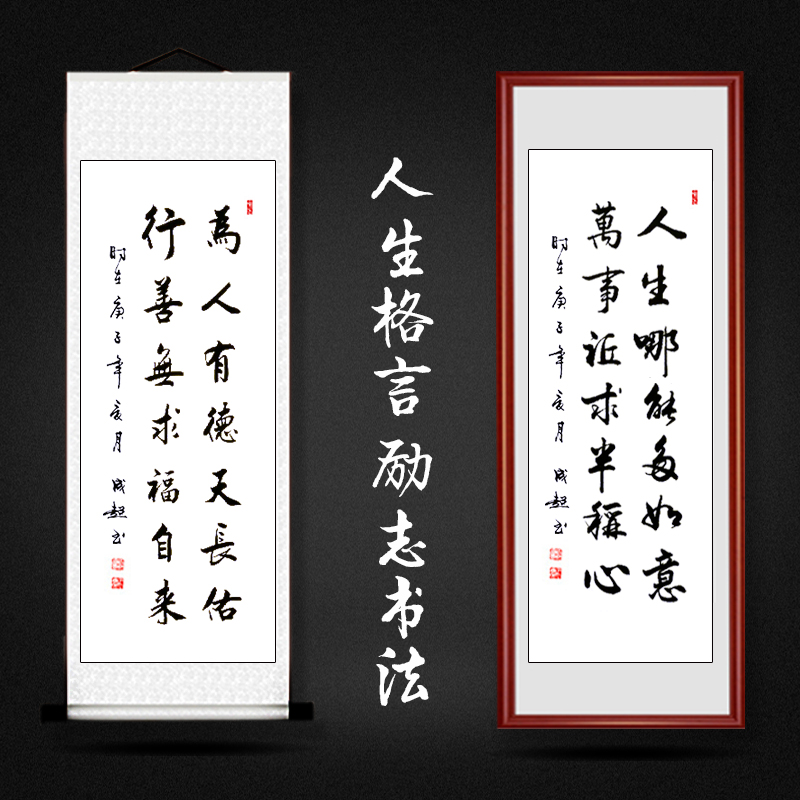 為人有德天長佑
行善無求福自来
时在庚子年月 成超书
人生格言励志书法
人生哪能多如意
萬事祗求半稱心
时在庚子年月 成超书